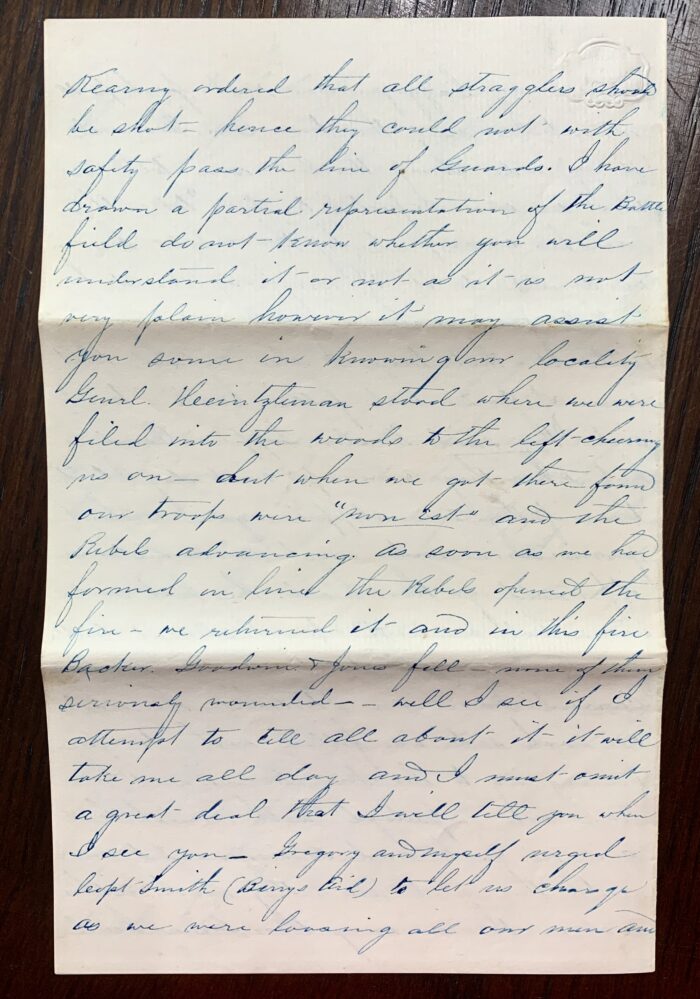 Kearny ordered that all stragglers should
be shot - hence they could not with
safety pass the line of Guards. I have
drawn a partial representation of the Battle
field do not know whether you will
understand it or not as it is not
very plain however it may assist
you some in knowing our locality
Genrl. Heintzleman stood where we were
filed into the woods to the left cheering
us on - but when we got there found
our troops were "non est" and the
Rebels advancing. As soon as we had
formed in line the Rebels opened the
fire - we returned it and in this fire
Backer. Goodwin & Jones fell - none of them
seriously wounded - - well I see if I
attempt to tell all about it it will
take me all day and I must omit
a great deal that I will tell you when
I see you - Gregory and myself urged
Capt Smith (Birnys Aid) to let us charge
as we were loosing all our men and